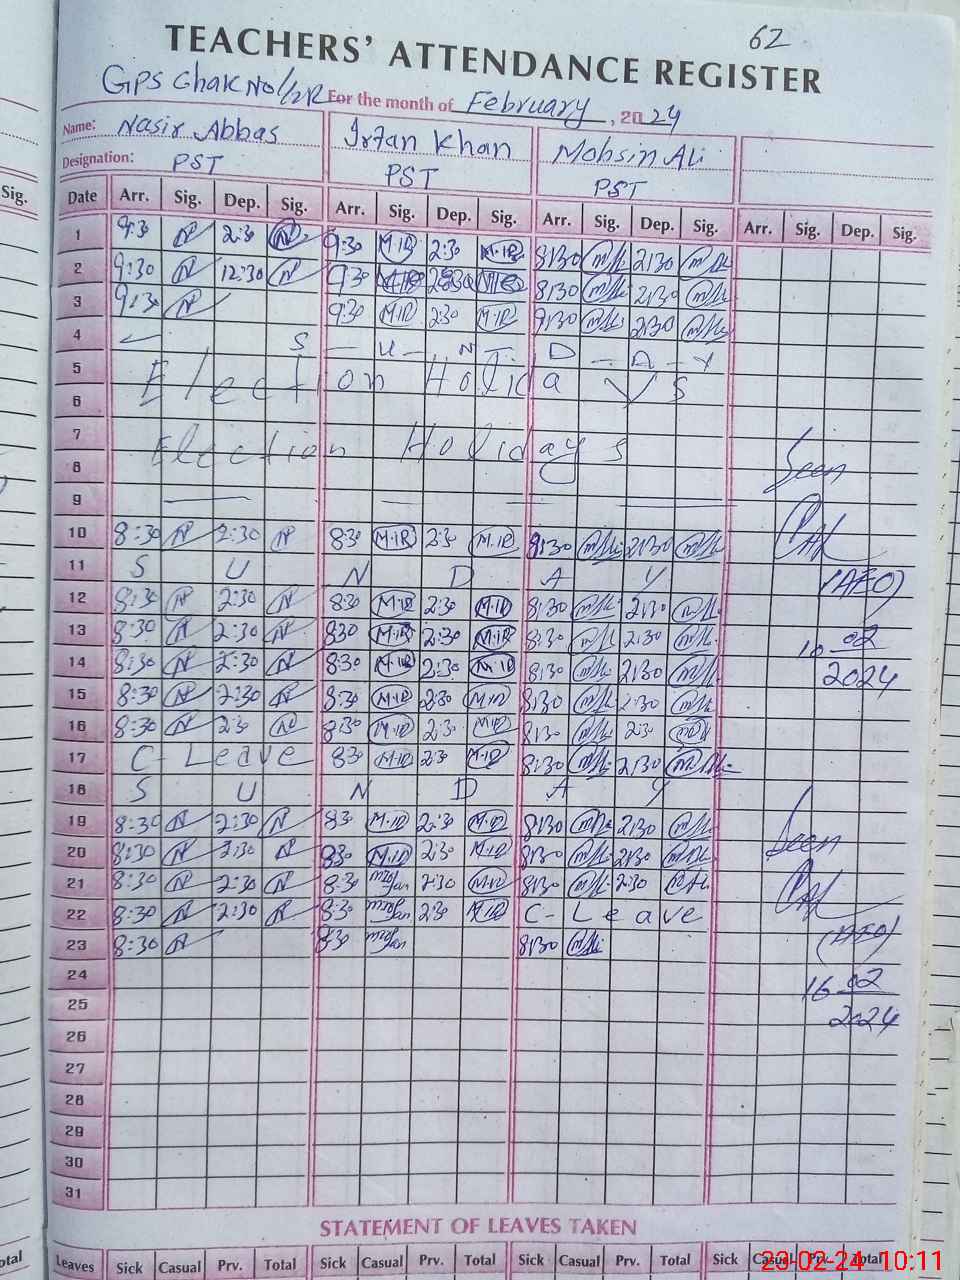 62
TEACHERS' ATTENDANCE REGISTER
GPS Chak No 1/2R For the month of February, 2024
Name: Nasir Abbas Irfan Khan Mohsin Ali
Designation: PST PST PST
Sig.
Date Arr. Sig. Dep. Sig. Arr. Sig. Dep. Sig. Arr. Sig. Dep. Sig. Arr. Sig. Dep. Sig.
1 9:3 N 2:30 N 9:30 M.IR 2:30 M.IR 8:30 2:30
2 9:30 N 12:30 N 9:30 M.IR M.IR 8:30 2:30
3 9:30 N 9:30 M.IR 2:30 M.IR 9:30 2:30
4 S - U - N - D - A - Y
5 Election Holidays
6
7 Election Holidays
8 Seen
9
10 8:30 N 2:30 N 8:30 M.IR 2:30 M.IR 8:30 2:30
11 S U N D A Y (AEO)
12 8:30 N 2:30 N 8:30 M.IR 2:30 M.IR 8:30 2:30
13 8:30 N 2:30 N 830 M.IR 2:30 M.IR 8:30 2:30 10 02
14 8:30 N 2:30 N 8:30 M.IR 2:30 M.IR 8:30 2:30 2024
15 8:30 N 2:30 N 8:30 M.IR 2:30 M.IR 8:30 2:30
16 8:30 N 2:3 N 8:30 M.IR 2:30 M.IR 8:30 2:30
17 C- Leave 830 M.IR 2:30 M.IR 8:30 2:30
18 S U N D A Y
19 8:30 N 2:30 N 8:30 M.IR 2:30 M.IR 8:30 2:30 Seen
20 8:30 N 2:30 N 8:30 M.IR 2:30 M.IR 8:30 2:30
21 8:30 N 2:30 N 8:30 2:30 M.IR 8:30 2:30
22 8:30 N 2:30 N 8:30 2:30 M.IR C- Leave
23 8:30 N 8:30 8:30 (AEO)
24 16 02
25 2024
26
27
28
29
30
31
STATEMENT OF LEAVES TAKEN
otal Leaves Sick Casual Prv. Total Sick Casual Prv. Total Sick Casual Prv. Total Sick Casual Prv. Total
23-02-24 10:11